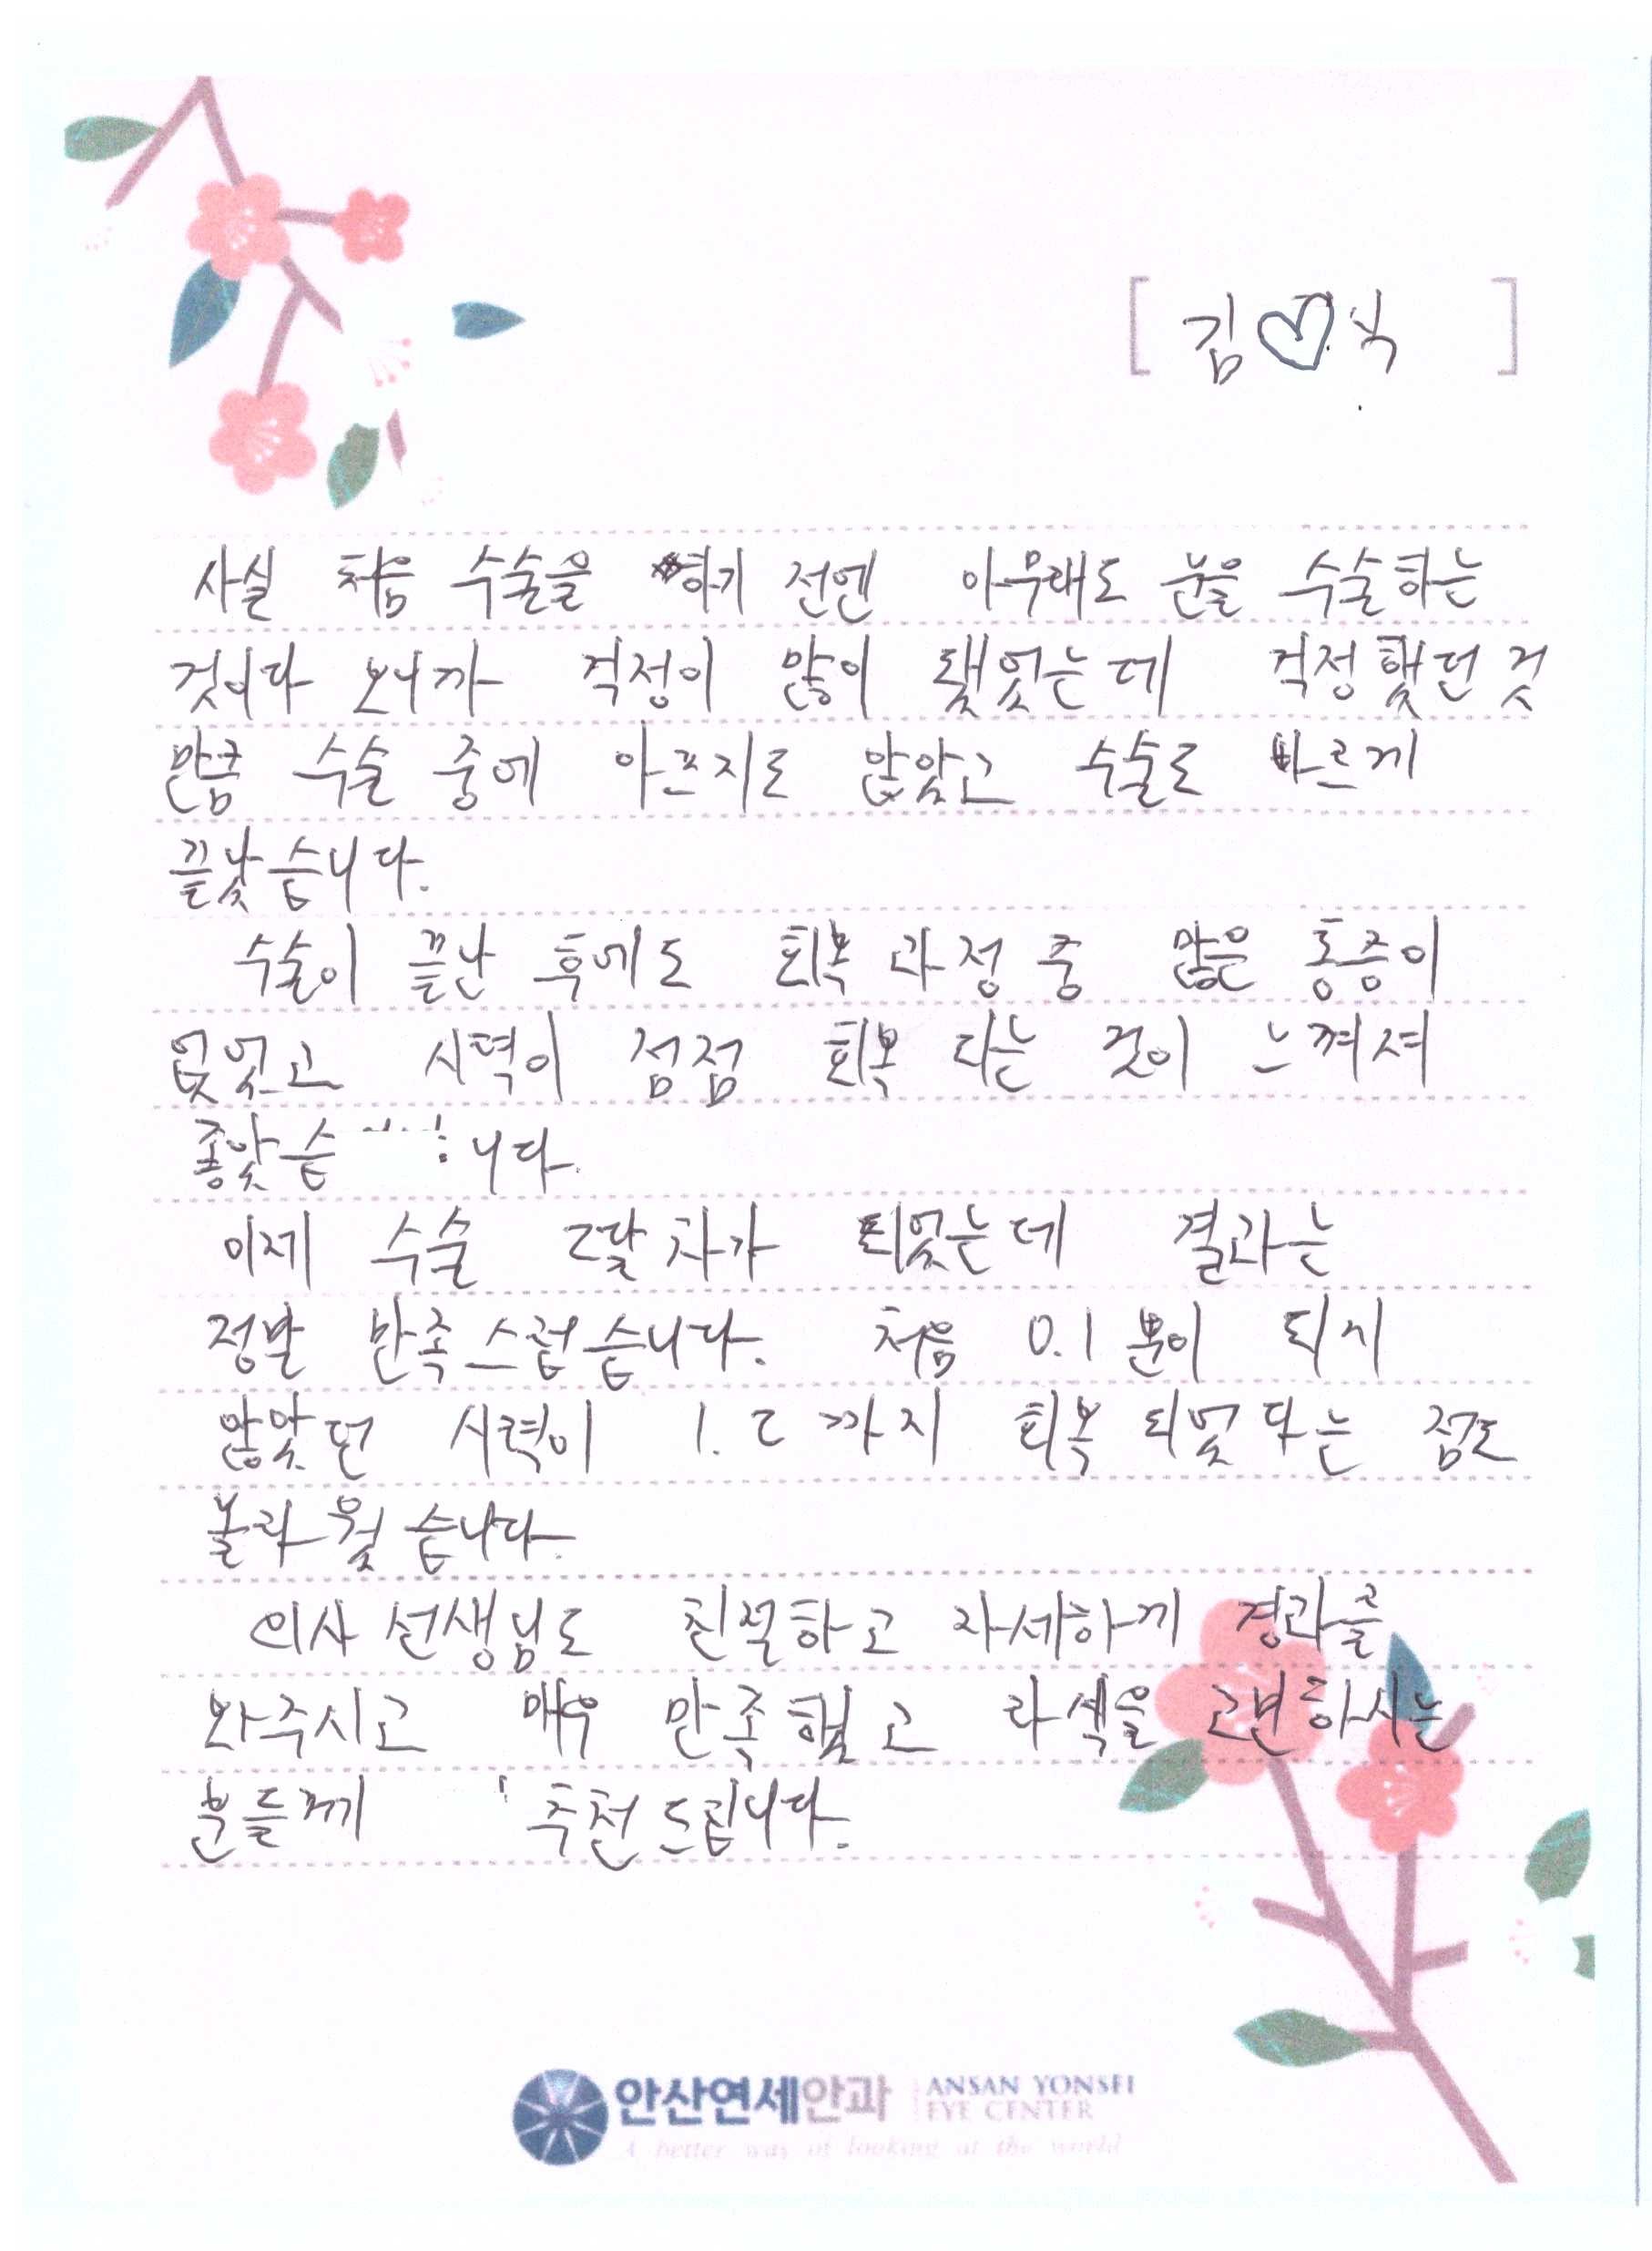 [ 김♡석 ]
사실 처음 수술을 하기 전엔 아무래도 눈을 수술하는
것이다 보니까 걱정이 많이 됐었는데 걱정했던 것
만큼 수술 중에 아프지도 않았고 수술도 빠르게
끝났습니다.
수술이 끝난 후에도 회복 과정 중 많은 통증이
없었고 시력이 점점 회복 되는 것이 느껴져
좋았습니다.
이제 수술 2달차가 되었는데 결과는
정말 만족스럽습니다. 처음 0.1 뿐이 되지
않았던 시력이 1.2까지 회복 되었다는 점도
놀라웠습니다.
의사 선생님도 친절하고 자세하게 경과를
봐주시고 매우 만족했고 라섹을 고민하시는
분들께 추천드립니다.
안산연세안과 ANSAN YONSEI
EYE CENTER
A better way of looking at the world